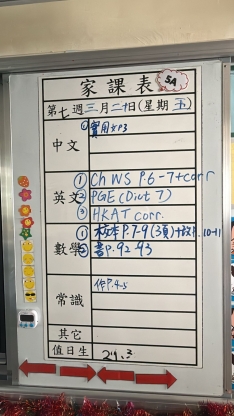 家課表
5A
第七週三月二十日(星期五)
中文
① 實用文P3
英文
① Ch WS P.6-7+corr
② PGE (Dict 7)
③ HKAT corr.
數學
① 校本P.7-9(3頁)+P.10-11
② 書P.92-93
常識
作P.4-5
其它
值日生
24, 3